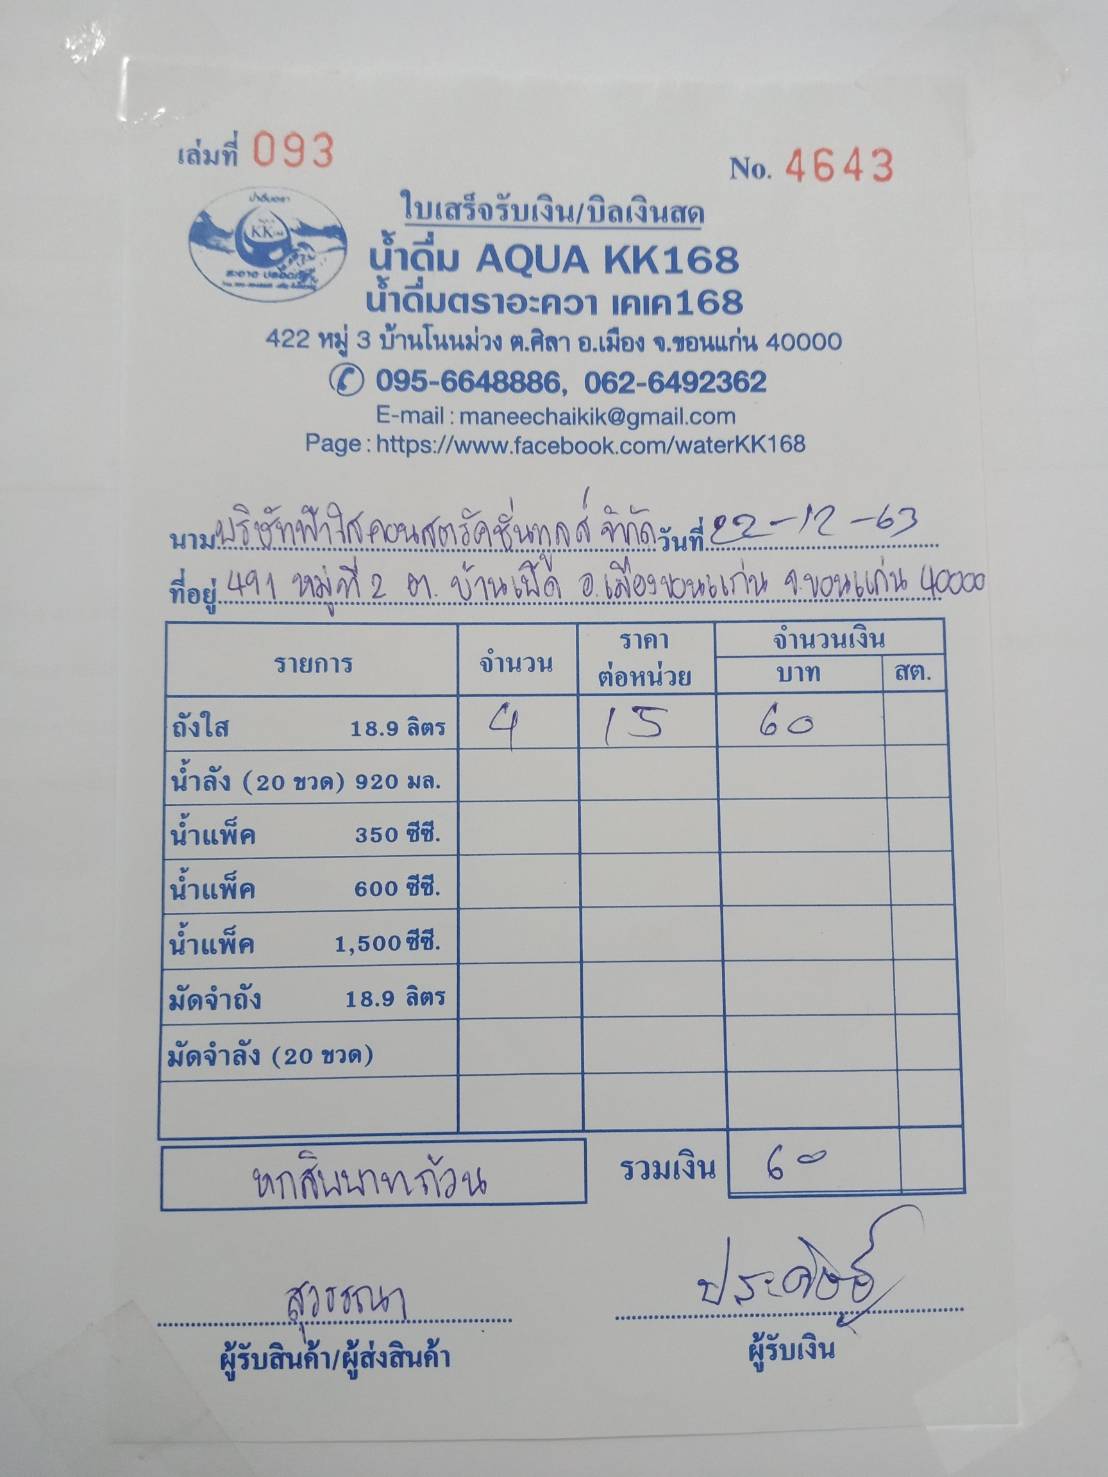 เล่มที่ 093
No. 4643
น้ำดื่มตรา
KK
สะอาด ปลอดภัย
ใบเสร็จรับเงิน/บิลเงินสด
น้ำดื่ม AQUA KK168
น้ำดื่มตราอะควา เคเค168
422 หมู่ 3 บ้านโนนม่วง ต.ศิลา อ.เมือง จ.ขอนแก่น 40000
095-6648886, 062-6492362
E-mail : maneechaikik@gmail.com
Page : https://www.facebook.com/waterKK168
นาม บริษัทฟ้าใสคอนสตรัคชั่นทูลส์ จำกัด วันที่ 22-12-63
ที่อยู่ 491 หมู่ที่ 2 ต. บ้านเป็ด อ.เมืองขอนแก่น จ.ขอนแก่น 40000
รายการ จำนวน ราคาต่อหน่วย จำนวนเงิน
บาท สต.
ถังใส 18.9 ลิตร 4 15 60
น้ำลัง (20 ขวด) 920 มล.
น้ำแพ็ค 350 ซีซี.
น้ำแพ็ค 600 ซีซี.
น้ำแพ็ค 1,500 ซีซี.
มัดจำถัง 18.9 ลิตร
มัดจำลัง (20 ขวด)
หกสิบบาทถ้วน รวมเงิน 60
สุวรรณา
ผู้รับสินค้า/ผู้ส่งสินค้า
ผู้รับเงิน